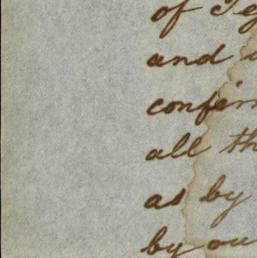 of Te
and
confirm
all th
as by
by ou